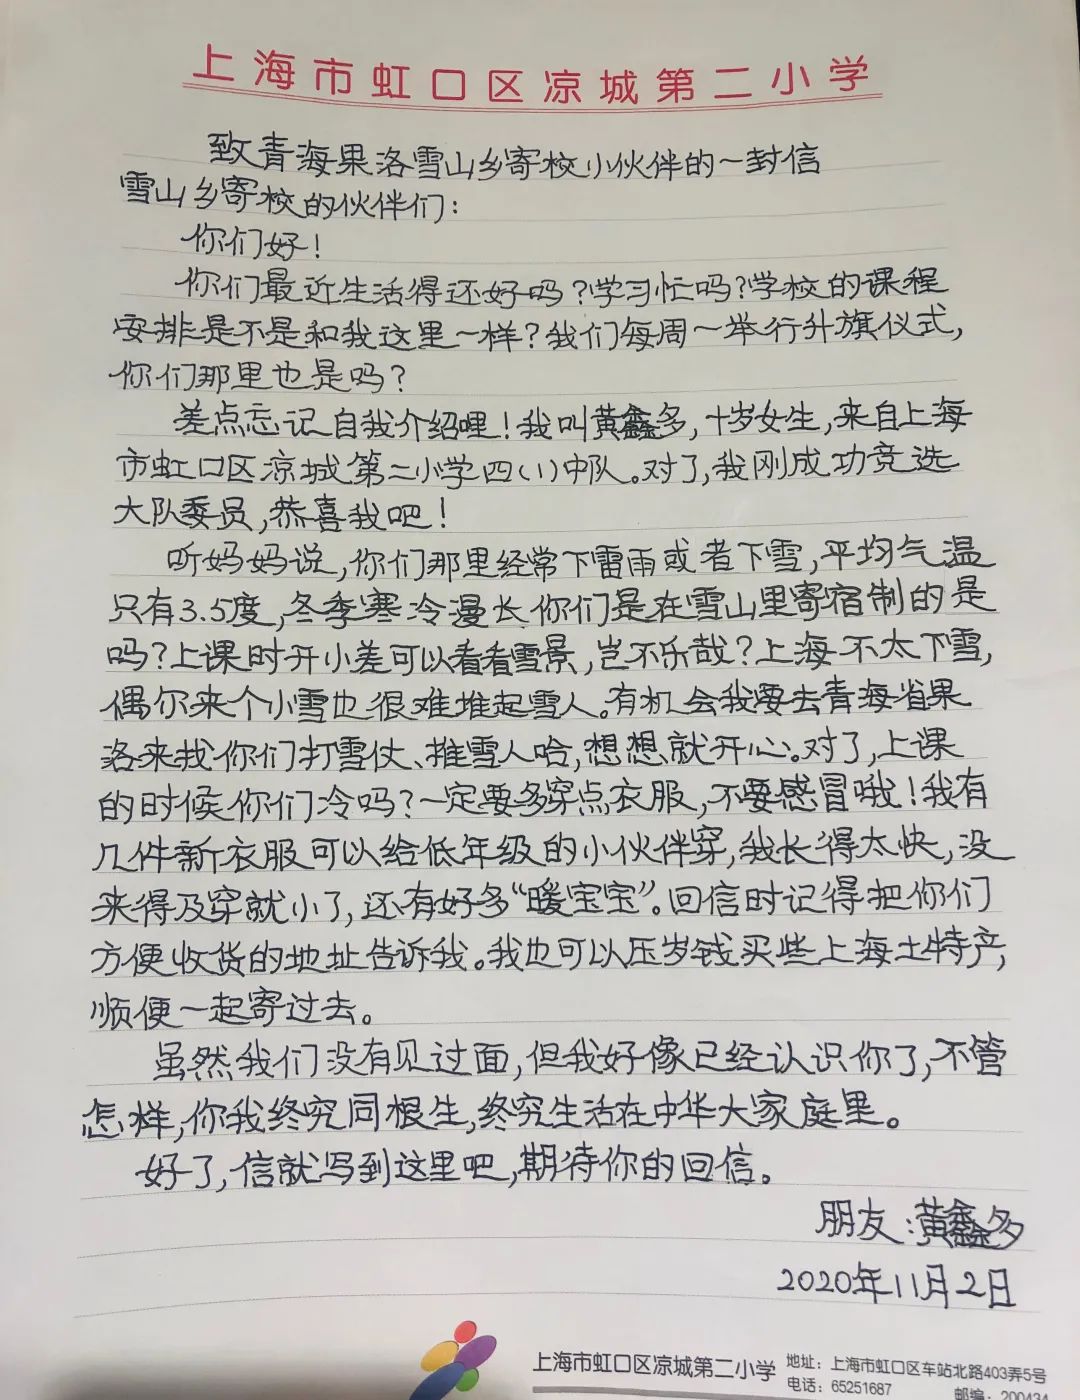 上海市虹口区凉城第二小学
致青海果洛雪山乡寄校小伙伴的一封信
雪山乡寄校的伙伴们：
你们好！
你们最近生活得还好吗？学习忙吗？学校的课程
安排是不是和我这里一样？我们每周一举行升旗仪式，
你们那里也是吗？
差点忘记自我介绍哩！我叫黄鑫多，十岁女生，来自上海
市虹口区凉城第二小学四（1）中队。对了，我刚成功竞选
大队委员，恭喜我吧！
听妈妈说，你们那里经常下雷雨或者下雪，平均气温
只有3.5度，冬季寒冷漫长你们是在雪山里寄宿制的是
吗？上课时开小差可以看看雪景，岂不乐哉？上海不太下雪，
偶尔来个小雪也很难堆起雪人。有机会我要去青海省果
洛来找你们打雪仗、推雪人哈，想想就开心。对了，上课
的时候你们冷吗？一定要多穿点衣服，不要感冒哦！我有
几件新衣服可以给低年级的小伙伴穿，我长得太快，没
来得及穿就小了，还有好多“暖宝宝”。回信时记得把你们
方便收货的地址告诉我。我也可以压岁钱买些上海土特产，
顺便一起寄过去。
虽然我们没有见过面，但我好像已经认识你了，不管
怎样，你我终究同根生，终究生活在中华大家庭里。
好了，信就写到这里吧，期待你的回信。
朋友：黄鑫多
2020年11月2日
上海市虹口区凉城第二小学
地址：上海市虹口区车站北路403弄5号
电话：65251687
邮编：200434